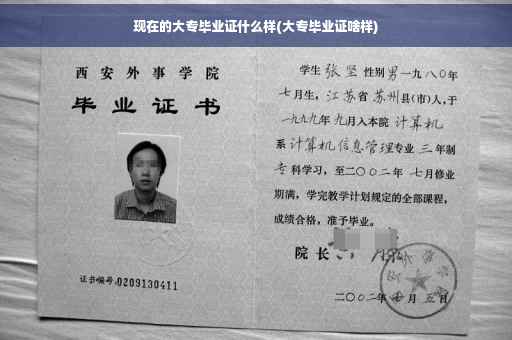 现在的大专毕业证什么样(大专毕业证啥样)
西安外事学院
毕业证书
证书编号:0209130411
学生 张坚 性别 男 一九八〇年
七月生，江苏省 苏州县(市)人,于
一九九九年 九月入本院 计算机
系 计算机信息管理专业 三 年制
专 科学习，至二〇〇二年 七月修业
期满，学完教学计划规定的全部课程，
成绩合格，准予毕业。
院长
二〇〇二年 月 五日